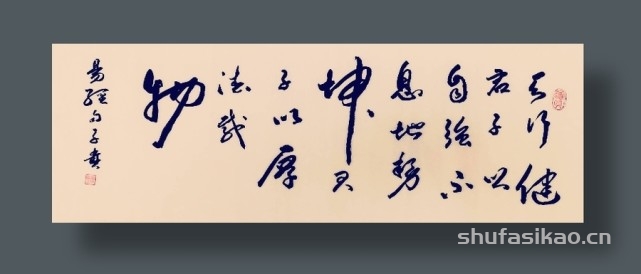 天行健
君子以
自強不
息地勢
坤君
子以厚
德載
物
易經句子
shufasikao.cn